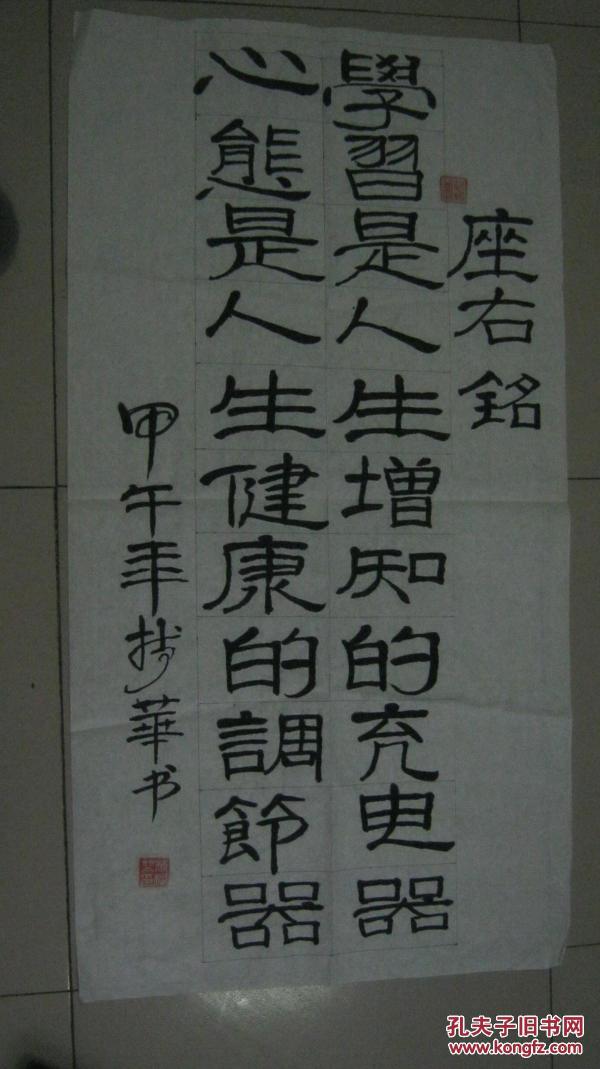 座右銘
學習是人生增知的充电器
心態是人生健康的調節器
甲午年 華书
孔夫子旧书网
www.kongfz.com